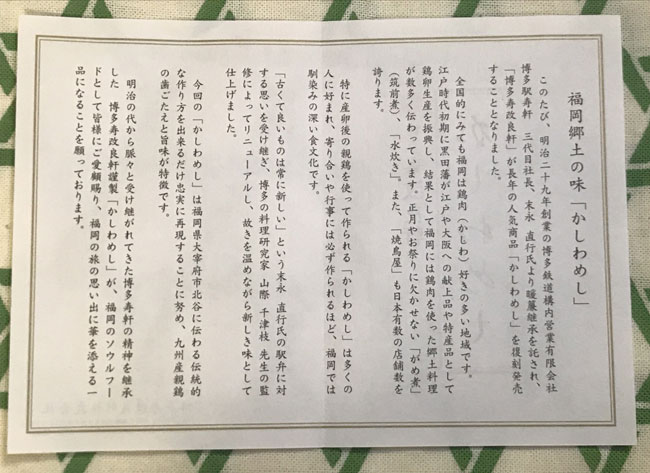 福岡郷土の味「かしわめし」
このたび、明治二十九年創業の博多鉄道構内営業有限会社
博多駅寿軒 三代目社長、末永 直行氏より暖簾継承を託され、
「博多寿改良軒」が長年の人気商品「かしわめし」を復刻発売
することとなりました。
全国的にみても福岡は鶏肉(かしわ)好きの多い地域です。
江戸時代初期に黒田藩が江戸や大阪への献上品や特産品として
鶏卵生産を振興し、結果として福岡には鶏肉を使った郷土料理
が数多く伝わっています。正月やお祭りに欠かせない「がめ煮」
(筑前煮)、「水炊き」。また、「焼鳥屋」も日本有数の店舗数を
誇ります。
特に産卵後の親鶏を使って作られる「かしわめし」は多くの
人に好まれ、寄り合いや行事には必ず作られるほど、福岡では
馴染みの深い食文化です。
「古くて良いものは常に新しい」という末永 直行氏の駅弁に対
する思いを受け継ぎ、博多の料理研究家 山際 千津枝 先生の監
修によってリニューアルし、故きを温めながら新しき味として
仕上げました。
今回の「かしわめし」は福岡県大宰府市北谷に伝わる伝統的
な作り方を出来るだけ忠実に再現することに努め、九州産親鶏
の歯ごたえと旨味が特徴です。
明治の代から脈々と受け継がれてきた博多寿軒の精神を継承
した 博多寿改良軒謹製「かしわめし」が、福岡のソウルフー
ドとして皆様にご愛顧賜り、福岡の旅の思い出に華を添える一
品になることを願っております。